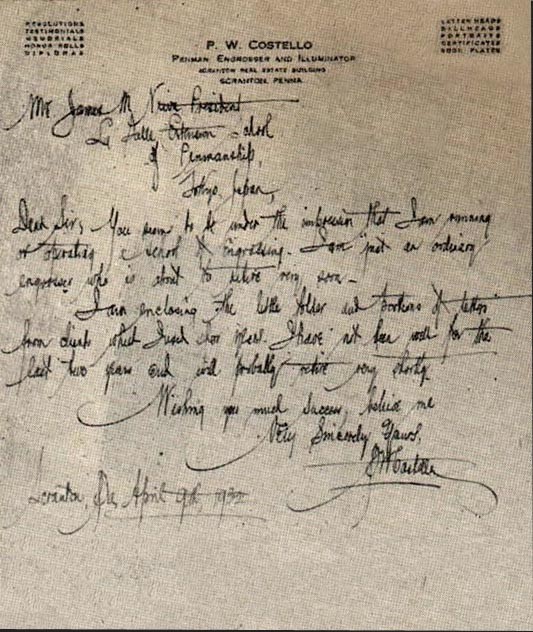 RESOLUTIONS
TESTIMONIALS
MEMORIALS
HONOR ROLLS
DIPLOMAS
LETTER HEADS
BILLHEADS
PORTRAITS
CERTIFICATES
BOOK PLATES
P. W. COSTELLO
PENMAN ENGROSSER AND ILLUMINATOR
SCRANTON REAL ESTATE BUILDING
SCRANTON, PENNA.
Mr James M President
La Salle Extension School
of Penmanship,
Tokyo, Japan,
Dear Sir; You seem to be under the impression that I am running
or operating a school of Engrossing. I am just an ordinary
engrosser who is about to retire very soon.
I am enclosing the little folder and portions of letters
from clients which I used years. I have not been well for the
last two years and will probably retire very shortly.
Wishing you much success, believe me
Very Sincerely Yours,
P W Costello
Scranton, Pa, April 9th,